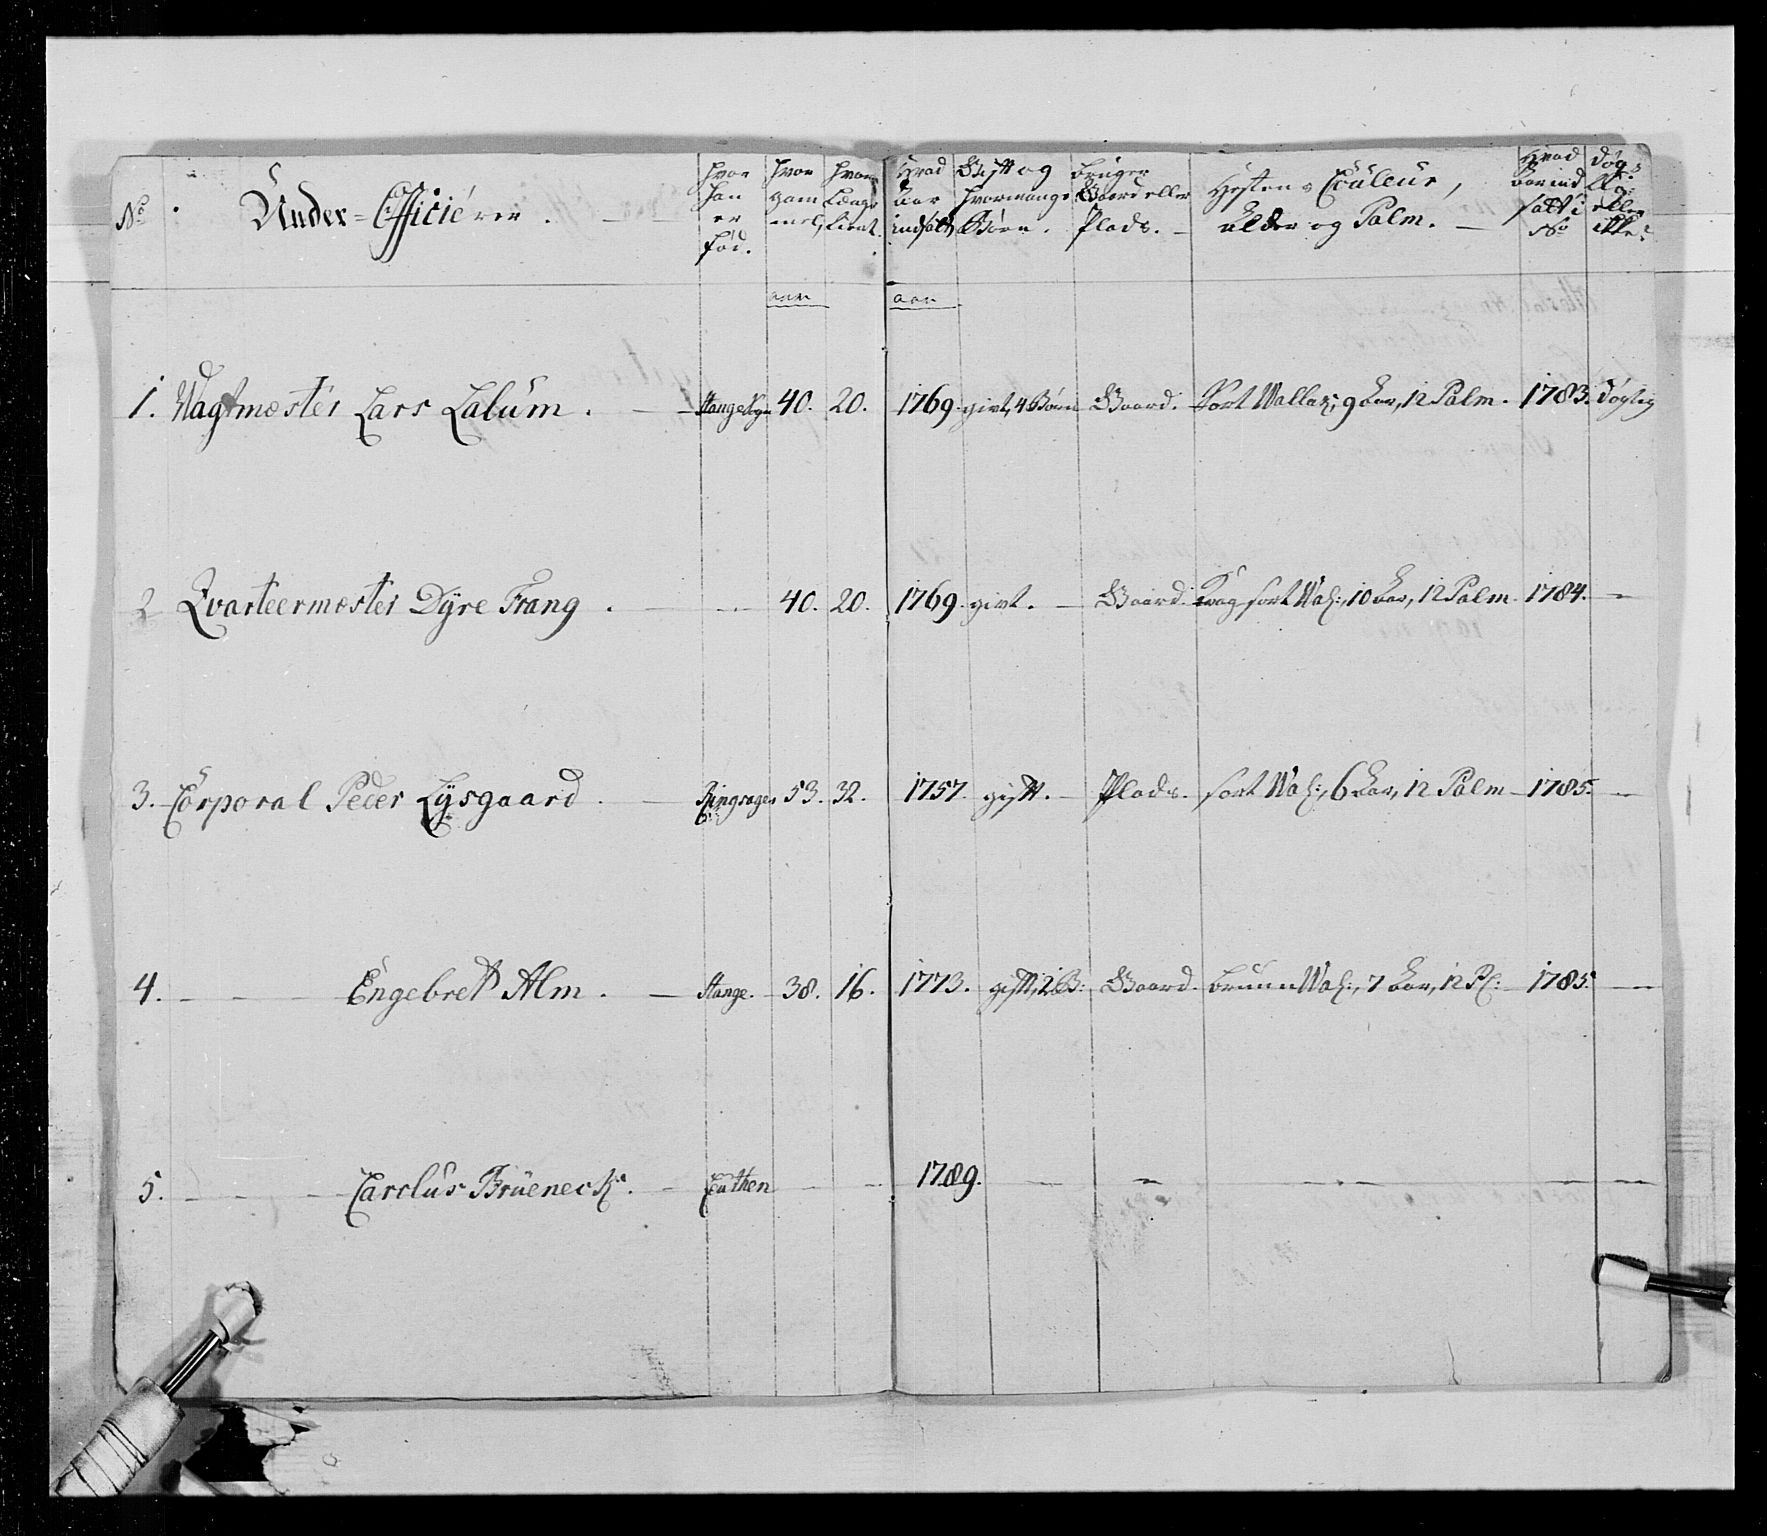 No. Under=Officiérer. hvor han er fød. hvor gammel, hvor længe tient. Hvad Aar indsatt, Gift og hvormange Børn. bruger Gaard eller Plads. Hestens Couleur, Alder og Palm. Hvad Aar indsatt i No Døgtig eller ikke?
aar aar
1. Wagtmester Lars Lalum. Stange Sogn 40. 20. 1769. givt, 4 Børn Gaard. Sort Wallak, 9 Aar, 12 Palm. 1783. Døgtig
2 Qvarteermester Dyre Frang. 40. 20. 1769. givt. Gaard. sort Wal:, 10 Aar, 12 Palm 1784.
3. Corporal Peder Lysgaard. Ringsager 53. 32. 1757. gift. Plads. sort Wal:, 6 Aar, 12 Palm 1785.
4. Engebret Alm. Stange. 38. 16. 1773. gift, 2 B: Gaard. bruun Wal:, 7 Aar, 12 Pl: 1785.
5. Carolus Brüenech. 1789.